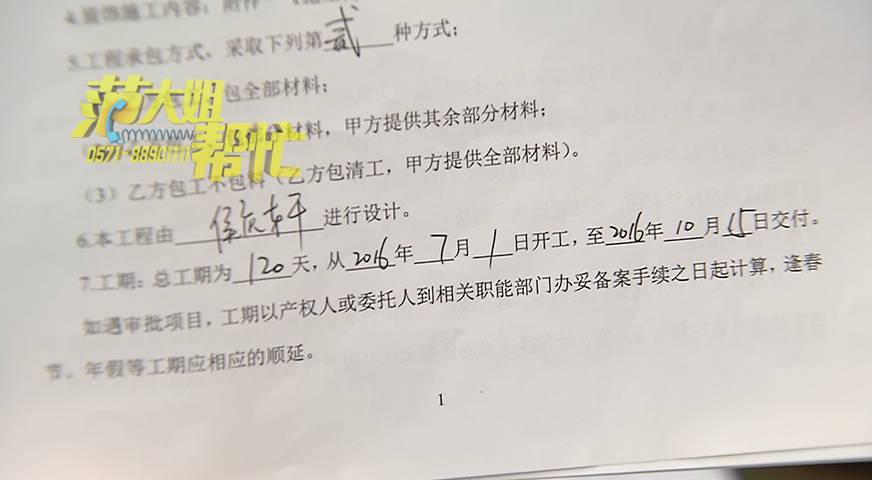 4.装饰施工内容：附件一《施
5.工程承包方式，采取下列第 贰 种方式；
包全部材料；
部分材料，甲方提供其余部分材料；
（3）乙方包工不包料（乙方包清工，甲方提供全部材料）。
6.本工程由 进行设计。
7.工期：总工期为 120 天，从 2016 年 7 月 1 日开工，至 2016 年 10 月 15 日交付。
如遇审批项目，工期以产权人或委托人到相关职能部门办妥备案手续之日起计算，逢春
节、年假等工期应相应的顺延。
1
范大姐
帮忙
0571-88901111